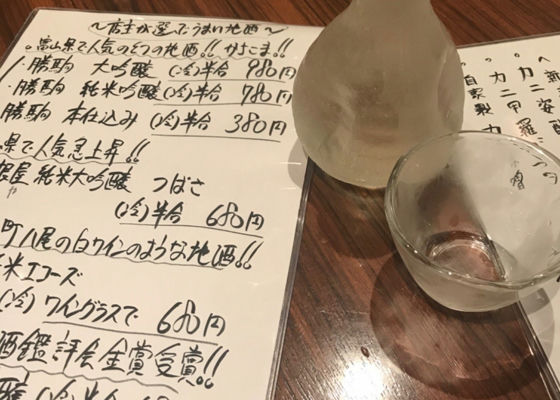 〜店主が選んだうまい地酒〜
富山県で人気の三つの地酒!! かちこま!!
勝駒 大吟醸 (冷)半合 980円
勝駒 純米吟醸 (冷)半合 780円
勝駒 本仕込み (冷)半合 380円
県で人気急上昇!!
純米大吟醸 つばさ
(冷)半合 680円
町八尾の白ワインのような地酒!!
米エコーズ
(冷) ワイングラスで 680円
酒鑑評会金賞受賞!!
(冷)半合
カニ姿
カニ甲羅
自家製カ